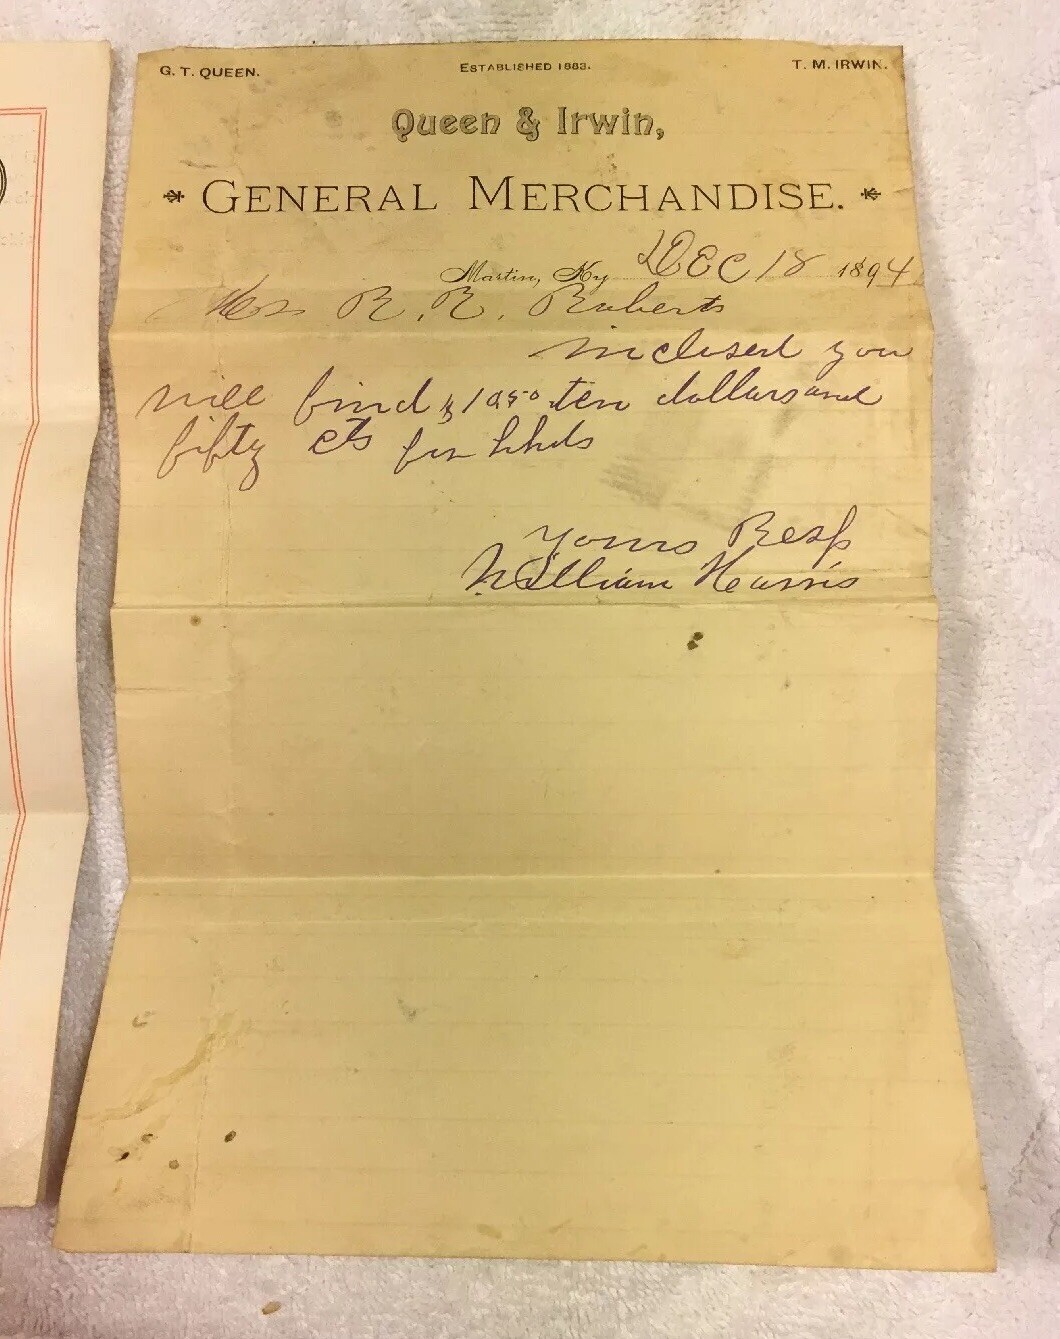 G. T. QUEEN. ESTABLISHED 1883. T. M. IRWIN.
Queen & Irwin,
GENERAL MERCHANDISE.
Martin, Ky DEC 18 1894
R. R. Roberts
inclosed you
will find $10 50 ten dollars and
fifty cts for hhds
Yours Resp
William Harris